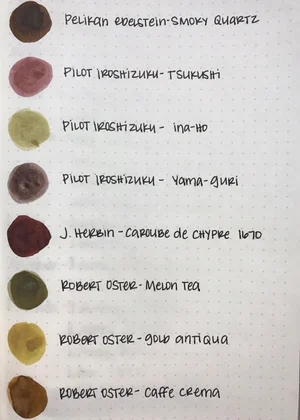 Pelikan edelstein-smoky quartz
Pilot Iroshizuku- Tsukushi
Pilot Iroshizuku - ina-ho
Pilot Iroshizuku - yama-guri
J. Herbin - Caroube de Chypre 1670
Robert Oster- Melon Tea
Robert Oster- gold antiqua
Robert Oster- Caffe Crema